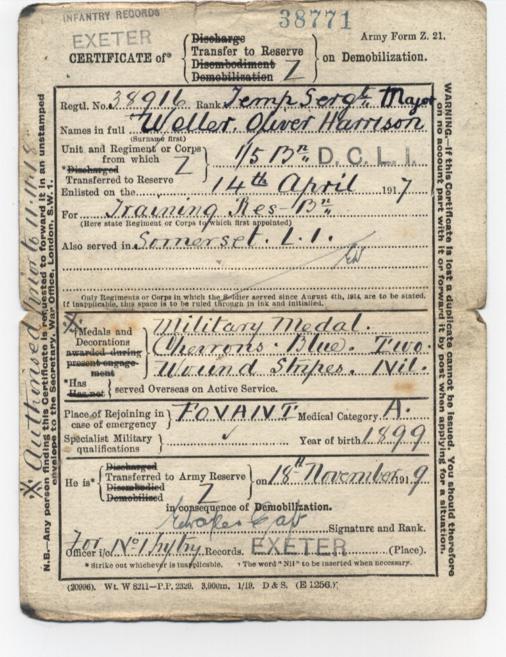 INFANTRY RECORDS
EXETER
38771
Army Form Z. 21.
CERTIFICATE of* { Discharge
Transfer to Reserve
Disembodiment
Demobilization } Z on Demobilization.
Regtl. No. 38916 Rank Temp Sergt. Major
Names in full Weller. Oliver Harrison
(Surname first)
Unit and Regiment or Corps
from which
*Discharged
Transferred to Reserve } Z 1/5 Bn D.C.L.I.
Enlisted on the 14th April 1917
For Training Res Bn
(Here state Regiment or Corps to which first appointed)
Also served in Somerset. L.I.
Only Regiments or Corps in which the Soldier served since August 4th, 1914, are to be stated.
If inapplicable, this space is to be ruled through in ink and initialled.
Medals and
Decorations
awarded during
present engage-
ment
Military Medal.
Chevrons. Blue. Two.
Wound Stripes. Nil.
*Has
Has not } served Overseas on Active Service.
Place of Rejoining in
case of emergency } FOVANT Medical Category A.
Specialist Military
qualifications } Year of birth 1899
He is* { Discharged
Transferred to Army Reserve
Disembodied
Demobilized } Z on 18th November 1919
in consequence of Demobilization.
Signature and Rank.
Officer i/c Records. EXETER (Place).
For No 1 Infty
* Strike out whichever is inapplicable. † The word "Nil" to be inserted when necessary.
(20996). Wt. W 8211—P.P. 2329. 3,000m. 1/19. D & S. (E 1256.)
WARNING.—If this Certificate is lost a duplicate cannot be issued. You should therefore
on no account part with it or forward it by post when applying for a situation.
N.B.—Any person finding this Certificate is requested to forward it in an unstamped
envelope to the Secretary, War Office, London, S.W. 1.
* Authorised prior to 11.11.18